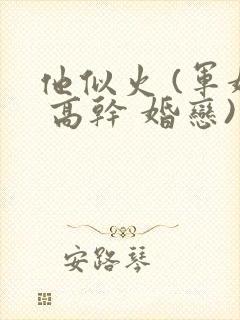 他似火 (軍婚
高幹 婚戀)
安路琴